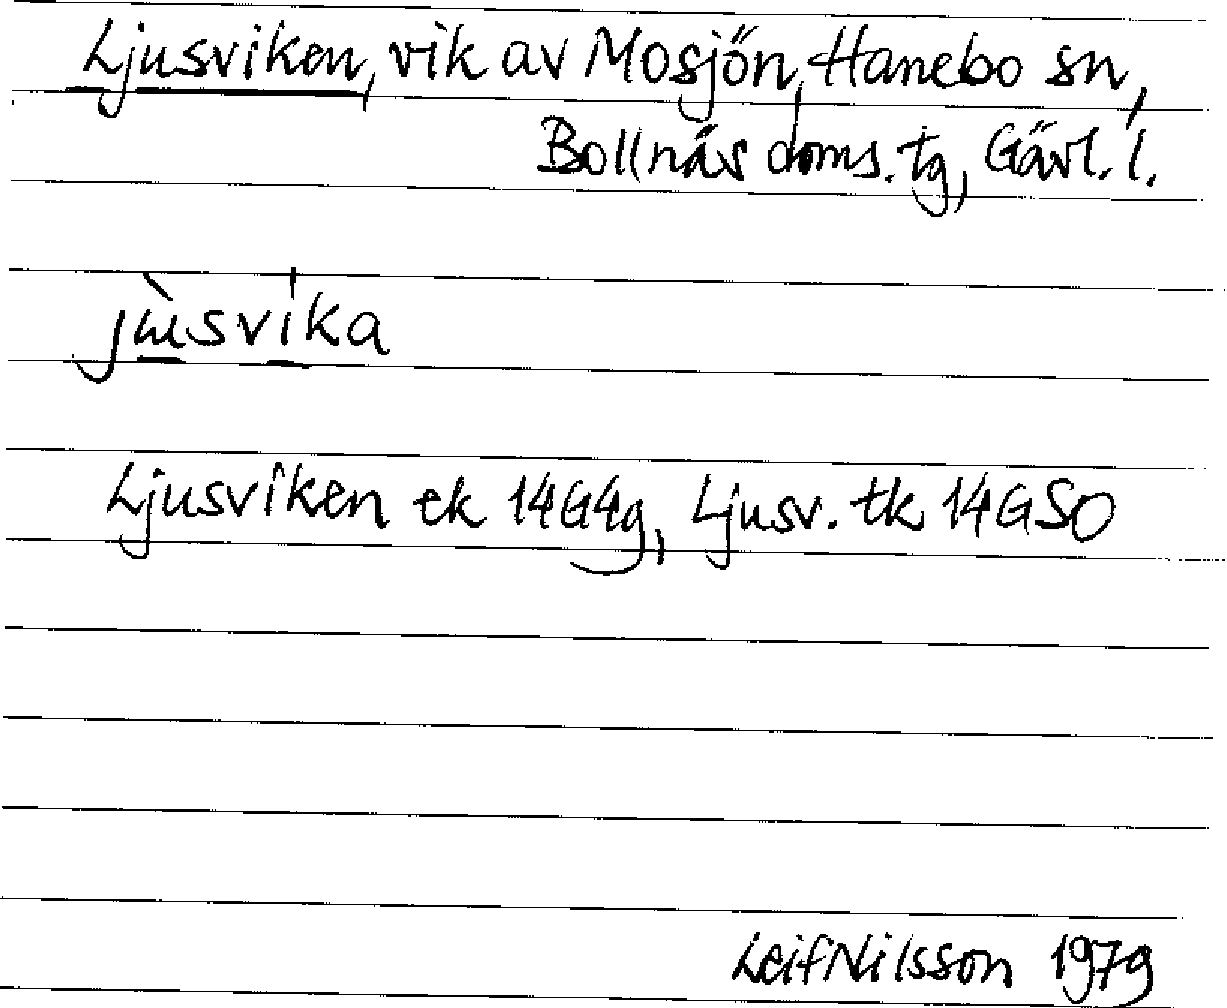 Ljusviken, vik av Mosjön, Hanebo sn,
Bollnäs doms. tg, Gävl. l.
Ljusviken ek 14G4g, Ljusv. tk 14GSO
Leif Nilsson 1979